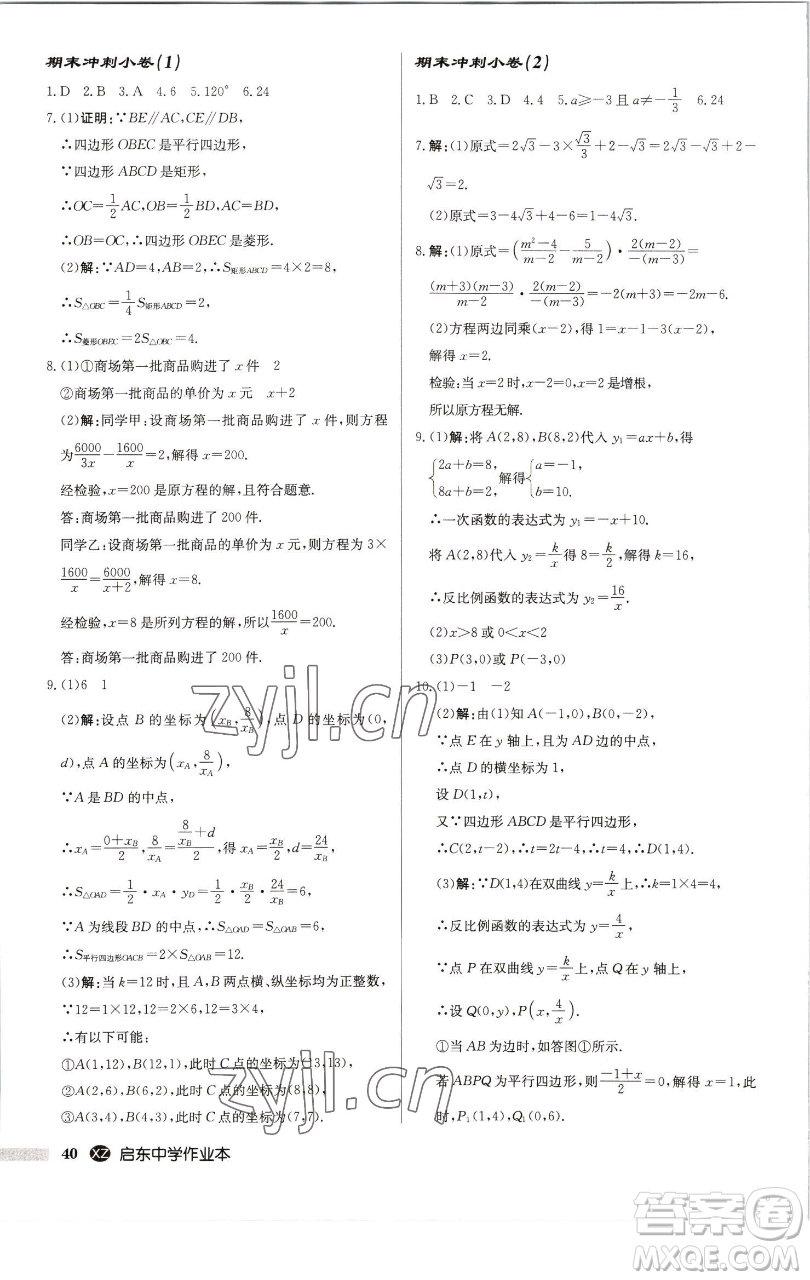 期末冲刺小卷(1)
1.D 2.B 3.A 4.6 5.120° 6.24
7.(1)证明:∵BE∥AC,CE∥DB,
∴四边形OBEC是平行四边形.
∵四边形ABCD是矩形,
∴OC=1/2AC,OB=1/2BD,AC=BD,
∴OB=OC,∴四边形OBEC是菱形.
(2)解:∵AD=4,AB=2,∴S矩形ABCD=4×2=8,
∴S△OBC=1/4S矩形ABCD=2,
∴S菱形OBEC=2S△OBC=4.
8.(1)①商场第一批商品购进了x件 2
②商场第一批商品的单价为x元 x+2
(2)解:同学甲:设商场第一批商品购进了x件,则方程
为6000/3x-1600/x=2,解得x=200.
经检验,x=200是原方程的解,且符合题意.
答:商场第一批商品购进了200件.
同学乙:设商场第一批商品的单价为x元,则方程为3×
1600/x=6000/(x+2),解得x=8.
经检验,x=8是所列方程的解,所以1600/x=200.
答:商场第一批商品购进了200件.
9.(1)6 1
(2)解:设点B的坐标为(xB,8/xB),点D的坐标为(0,
d),点A的坐标为(xA,8/xA).
∵A是BD的中点,
∴xA=(0+xB)/2,8/xA=(8/xB+d)/2,得xA=xB/2,d=24/xB,
∴S△OAD=1/2·xA·yD=1/2·xB/2·24/xB=6,
∵A为线段BD的中点,∴S△OAD=S△OAB=6,
∴S平行四边形OACB=2×S△OAB=12.
(3)解:当k=12时,且A,B两点横、纵坐标均为正整数,
∵12=1×12,12=2×6,12=3×4,
∴有以下可能:
①A(1,12),B(12,1),此时C点的坐标为(13,13),
②A(2,6),B(6,2),此时C点的坐标为(8,8),
③A(3,4),B(4,3),此时C点的坐标为(7,7).
期末冲刺小卷(2)
1.B 2.C 3.D 4.4 5.a≥-3且a≠-1/3 6.24
7.解:(1)原式=2√3-3×√3/3+2-√3=2√3-√3+2-
√3=2.
(2)原式=3-4√3+4-6=1-4√3.
8.解:(1)原式=((m²-4)/(m-2)-5/(m-2))·2(m-2)/-(m-3)=
(m+3)(m-3)/(m-2)·2(m-2)/-(m-3)=-2(m+3)=-2m-6.
(2)方程两边同乘(x-2),得1=x-1-3(x-2),
解得x=2.
检验:当x=2时,x-2=0,x=2是增根,
所以原方程无解.
9.(1)解:将A(2,8),B(8,2)代入y₁=ax+b,得
{2a+b=8, 解得{a=-1,
8a+b=2, b=10.
∴一次函数的表达式为y₁=-x+10.
将A(2,8)代入y₂=k/x得8=k/2,解得k=16,
∴反比例函数的表达式为y₂=16/x.
(2)x>8或0<x<2
(3)P(3,0)或P(-3,0)
10.(1)-1 -2
(2)解:由(1)知A(-1,0),B(0,-2),
∵点E在y轴上,且为AD边的中点,
∴点D的横坐标为1.
设D(1,t),
又∵四边形ABCD是平行四边形,
∴C(2,t-2),∴t=2t-4,∴t=4,∴D(1,4).
(3)解:∵D(1,4)在双曲线y=k/x上,∴k=1×4=4,
∴反比例函数的表达式为y=4/x,
∵点P在双曲线y=k/x上,点Q在y轴上,
∴设Q(0,y),P(x,4/x),
①当AB为边时,如答图①所示.
若ABPQ为平行四边形,则(-1+x)/2=0,解得x=1,此
时,P₁(1,4),Q₁(0,6).
40 XZ 启东中学作业本
zyjl.cn
zyjl.cn
答案圈
MXQE.COM